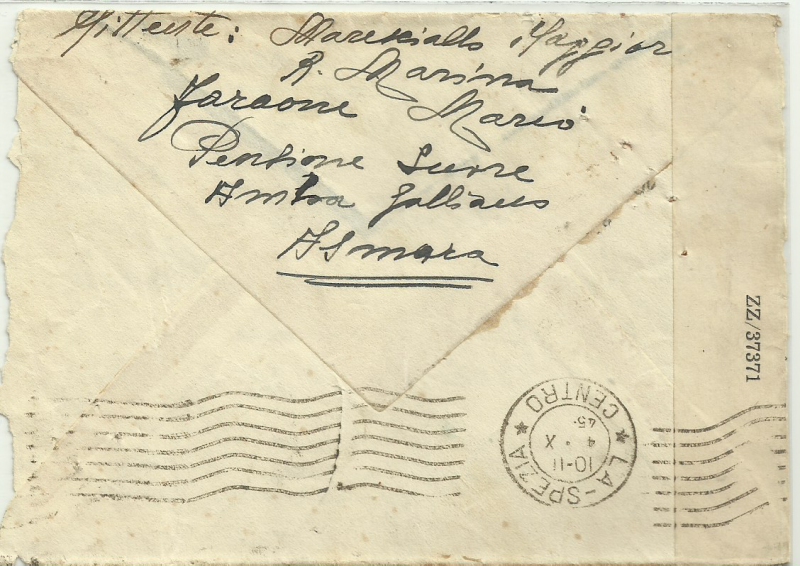 Mittente: Maresciallo Maggior
R. Marina
Faraone Mario
Pensione
Amba Galliano
Asmara
ZZ/37371
LA-SPEZIA
CENTRO
10-11
4 · X
45